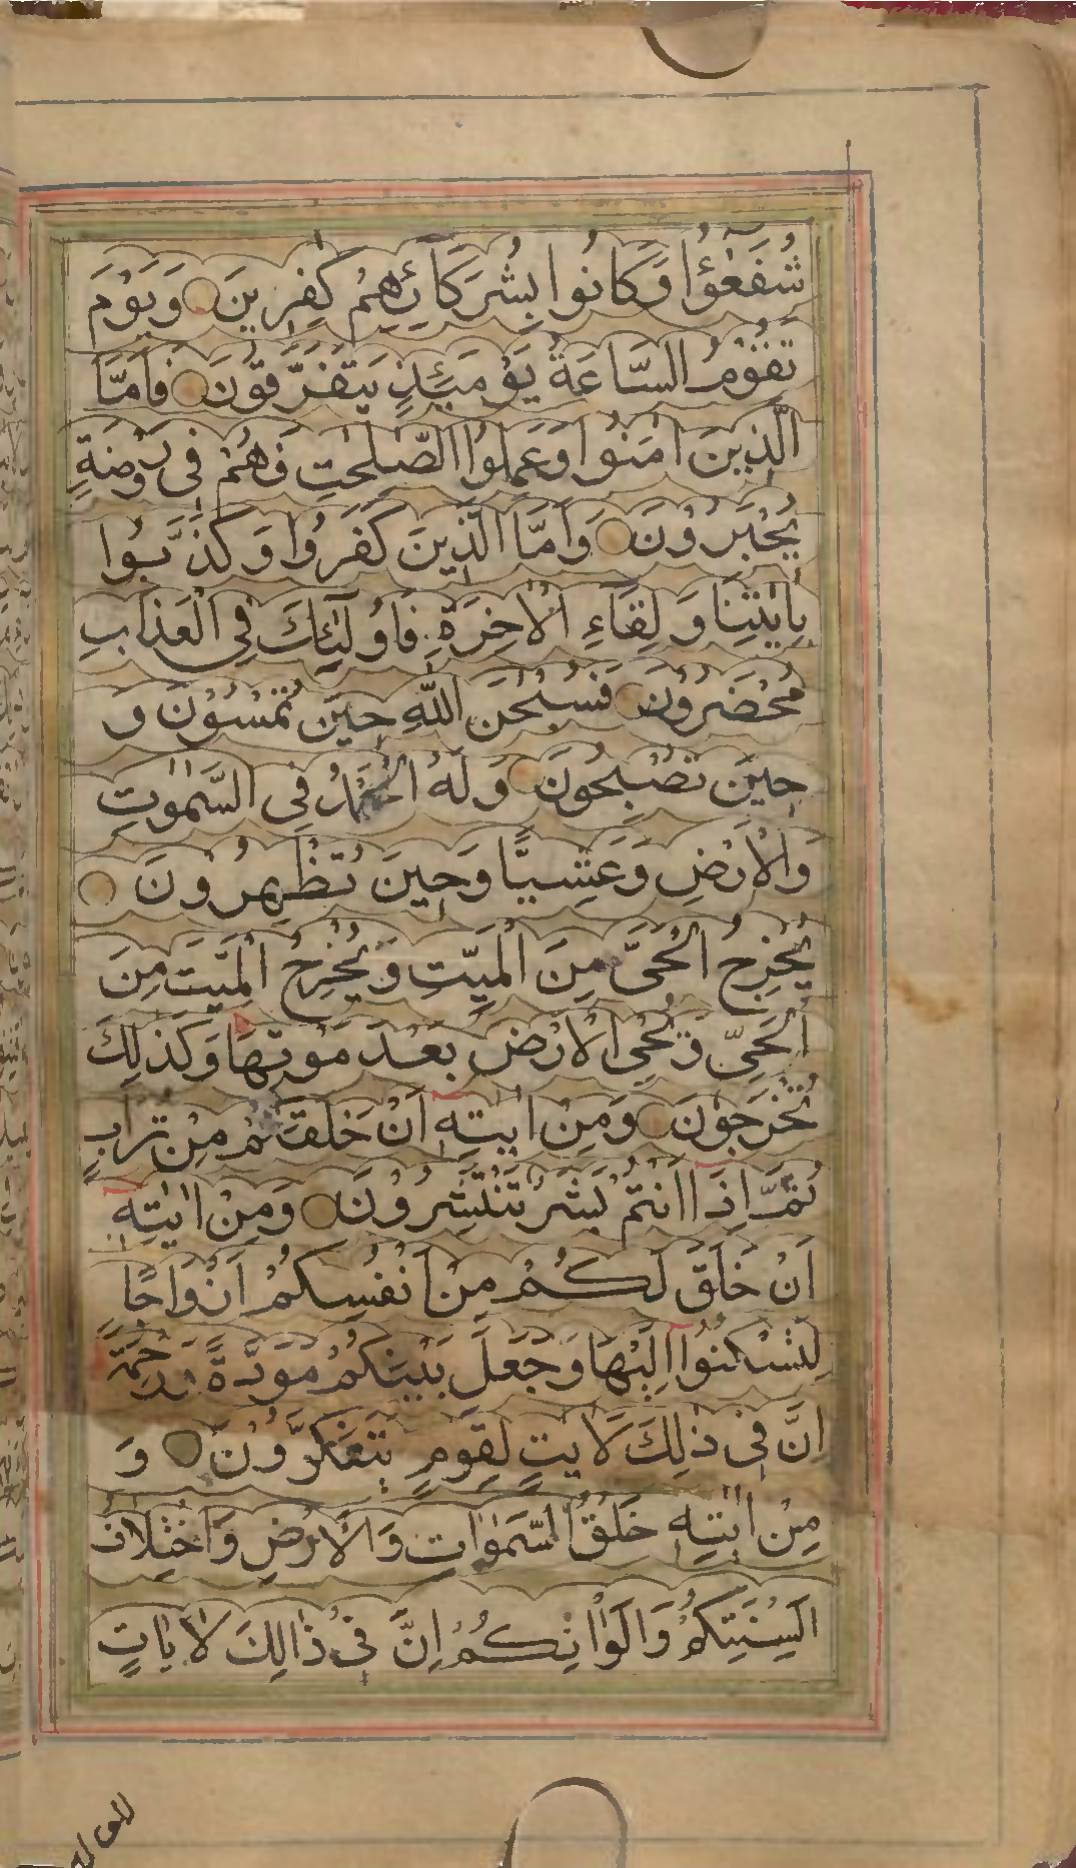 شُفَعٰٓؤُا وَكَانُوا بِشُرَكَآئِهِمْ كٰفِرِينَ وَيَوْمَ
تَقُوْمُ السَّاعَةُ يَوْمَئِذٍ يَتَفَرَّقُونَ فَاَمَّا
الَّذِينَ اٰمَنُوا وَعَمِلُوا الصّٰلِحٰتِ فَهُمْ فِى رَوْضَةٍ
يُحْبَرُوْنَ وَاَمَّا الَّذِينَ كَفَرُوْا وَكَذَّبُوا
بِاٰيٰتِنَا وَلِقَآءِ الْاٰخِرَةِ فَاُولٰٓئِكَ فِى الْعَذَابِ
مُحْضَرُوْنَ فَسُبْحٰنَ اللّٰهِ حِيْنَ تُمْسُوْنَ وَ
حِيْنَ تُصْبِحُونَ وَلَهُ الْحَمْدُ فِى السَّمٰوٰتِ
وَالْاَرْضِ وَعَشِيًّا وَحِينَ تُظْهِرُوْنَ
يُخْرِجُ الْحَىَّ مِنَ الْمَيِّتِ وَيُخْرِجُ الْمَيِّتَ مِنَ
الْحَىِّ وَيُحْىِ الْاَرْضَ بَعْدَ مَوْتِهَا وَكَذٰلِكَ
تُخْرَجُوْنَ وَمِنْ اٰيٰتِهٖ اَنْ خَلَقَكُمْ مِنْ تُرَابٍ
ثُمَّ اِذَا اَنْتُمْ بَشَرٌ تَنْتَشِرُوْنَ وَمِنْ اٰيٰتِهٖ
اَنْ خَلَقَ لَكُمْ مِنْ اَنْفُسِكُمْ اَزْوَاجًا
لِتَسْكُنُوْا اِلَيْهَا وَجَعَلَ بَيْنَكُمْ مَوَدَّةً وَرَحْمَةً
اِنَّ فِى ذٰلِكَ لَاٰيٰتٍ لِقَوْمٍ يَتَفَكَّرُوْنَ وَ
مِنْ اٰيٰتِهٖ خَلْقُ السَّمٰوٰاتِ وَالْاَرْضِ وَاخْتِلَافُ
اَلْسِنَتِكُمْ وَاَلْوَانِكُمْ اِنَّ فِىْ ذٰالِكَ لَاٰيَاتٍ